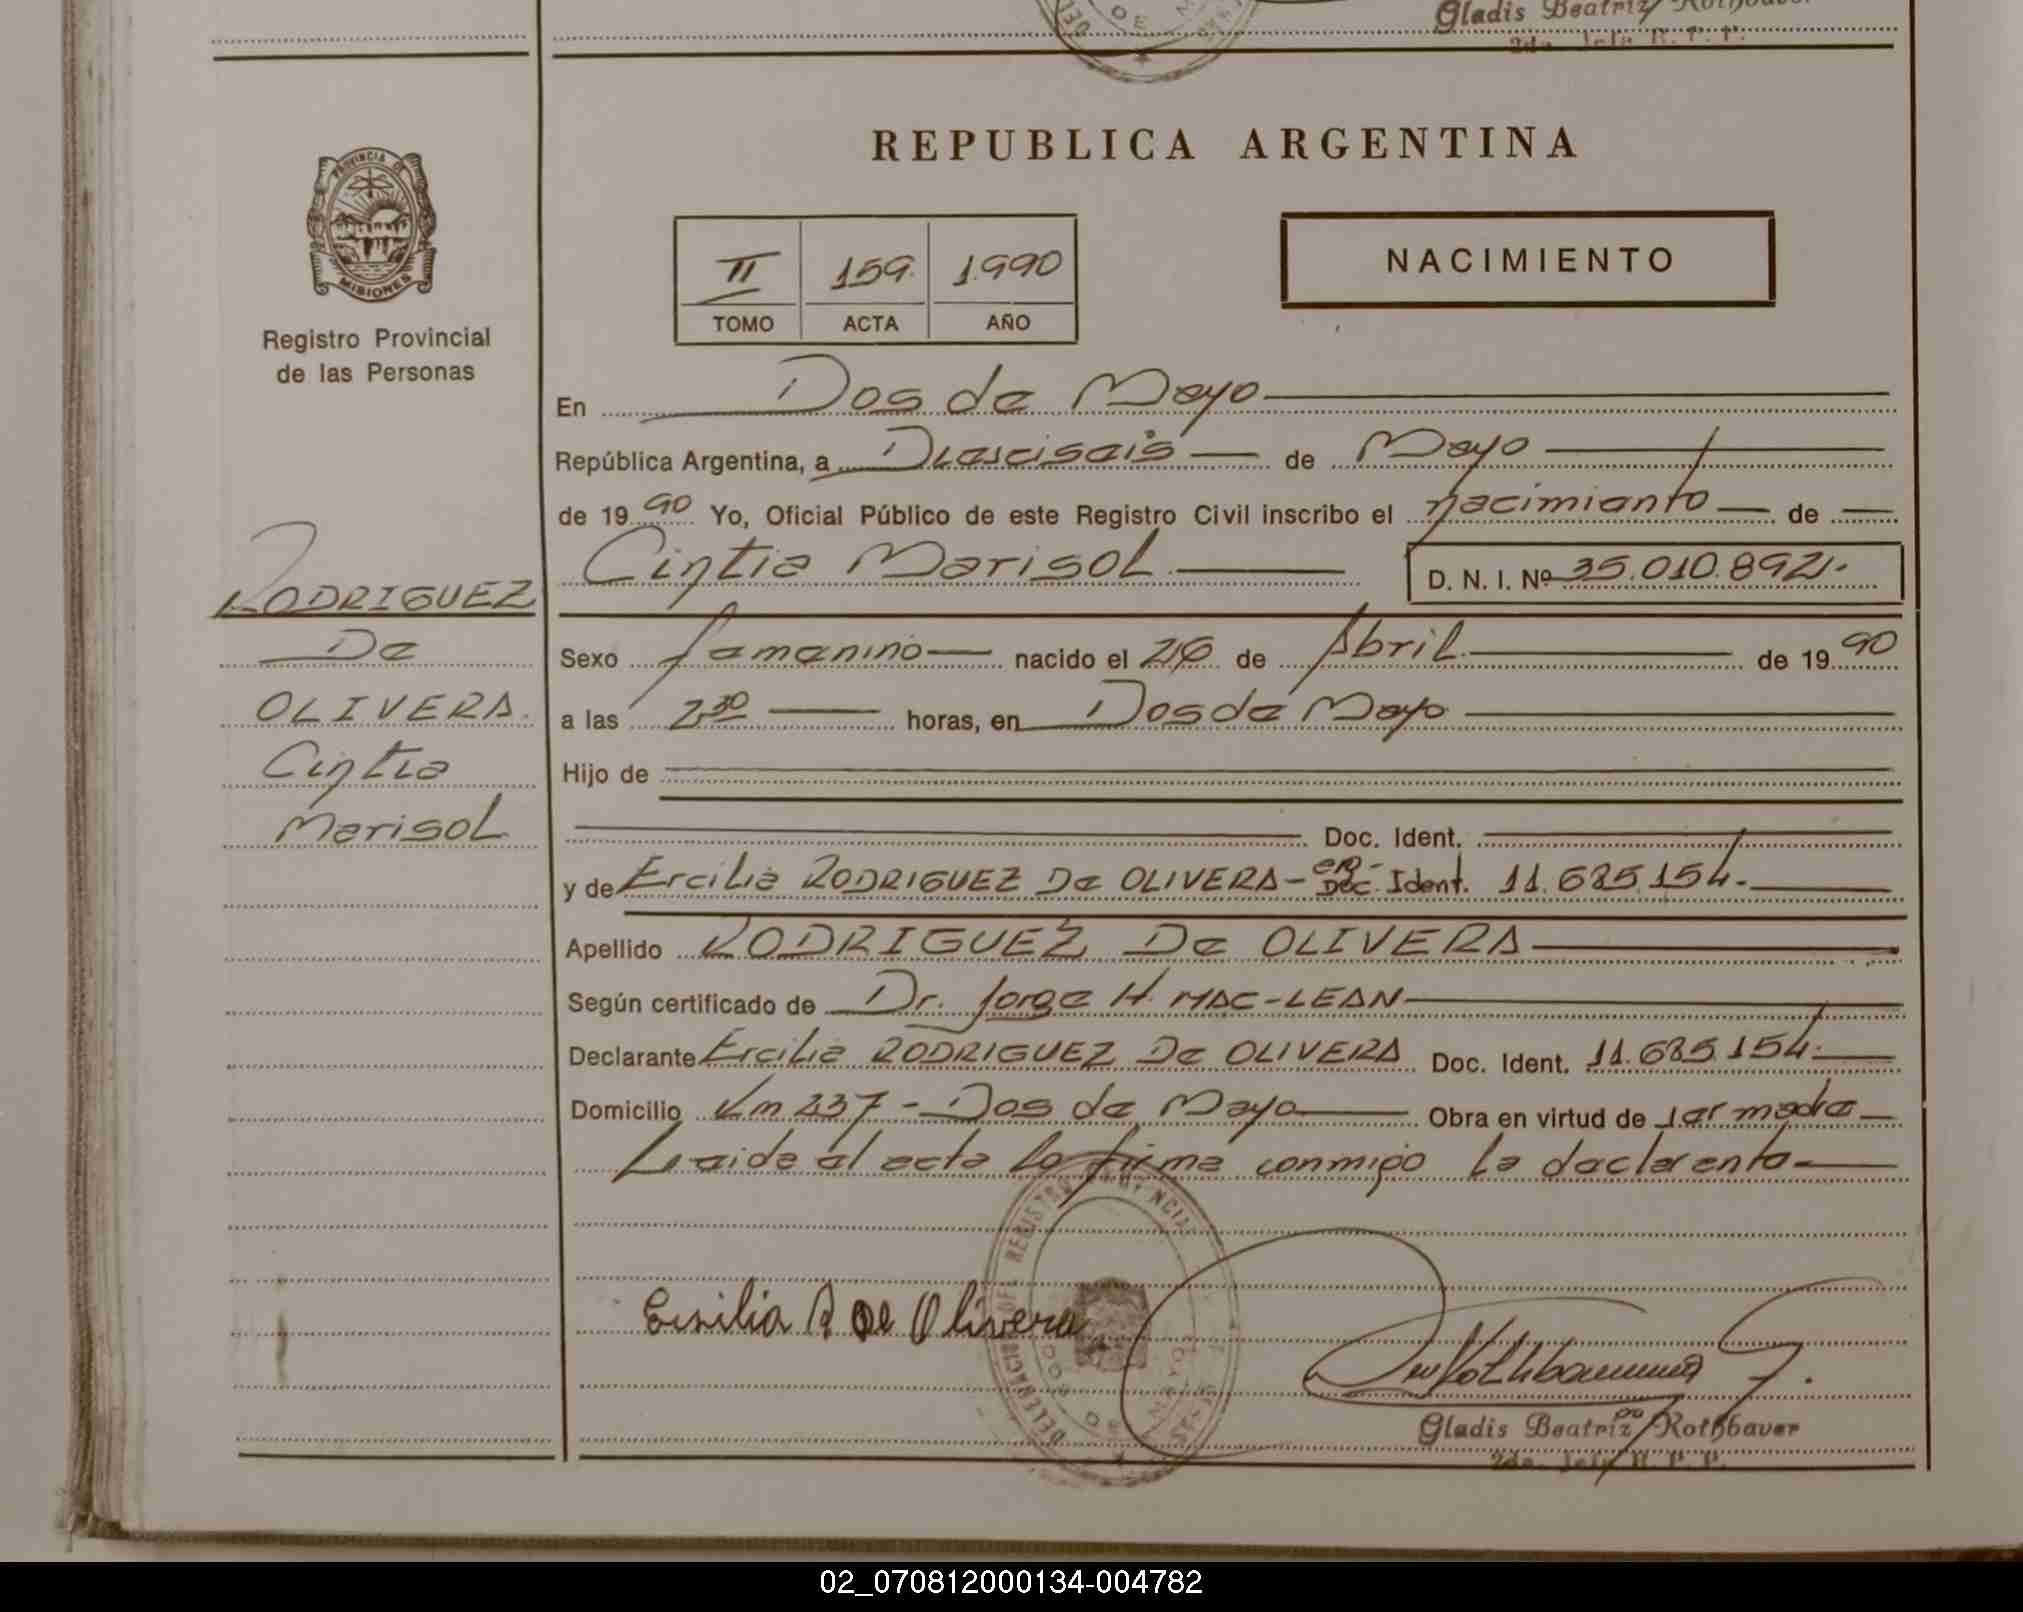 Gladis Beatriz Rothbauer
2da. Jefe R. P. P.
REPUBLICA ARGENTINA
PROVINCIA DE
MISIONES
Registro Provincial
de las Personas
II 159 1990
TOMO ACTA AÑO
NACIMIENTO
En Dos de Mayo
República Argentina, a Dieciseis de Mayo
de 1990 Yo, Oficial Público de este Registro Civil inscribo el nacimiento de
Cintia Marisol D. N. I. Nº 35.010.892.-
RODRIGUEZ
De
OLIVERA.
Cintia
Marisol
Sexo femenino nacido el 26 de Abril de 1990
a las 2,30 horas, en Dos de Mayo
Hijo de
Doc. Ident.
y de Ercilia RODRIGUEZ De OLIVERA - Doc. Ident. 11.685.154.-
Apellido RODRIGUEZ De OLIVERA
Según certificado de Dr. Jorge H. MAC-LEAN
Declarante Ercilia RODRIGUEZ De OLIVERA Doc. Ident. 11.685.154.
Domicilio Km 237 - Dos de Mayo Obra en virtud de ser madre
Leida el acta la firma conmigo la declarente
R de Olivera
Gladis Beatriz Rothbauer
2da. Jefe R. P. P.
02_070812000134-004782